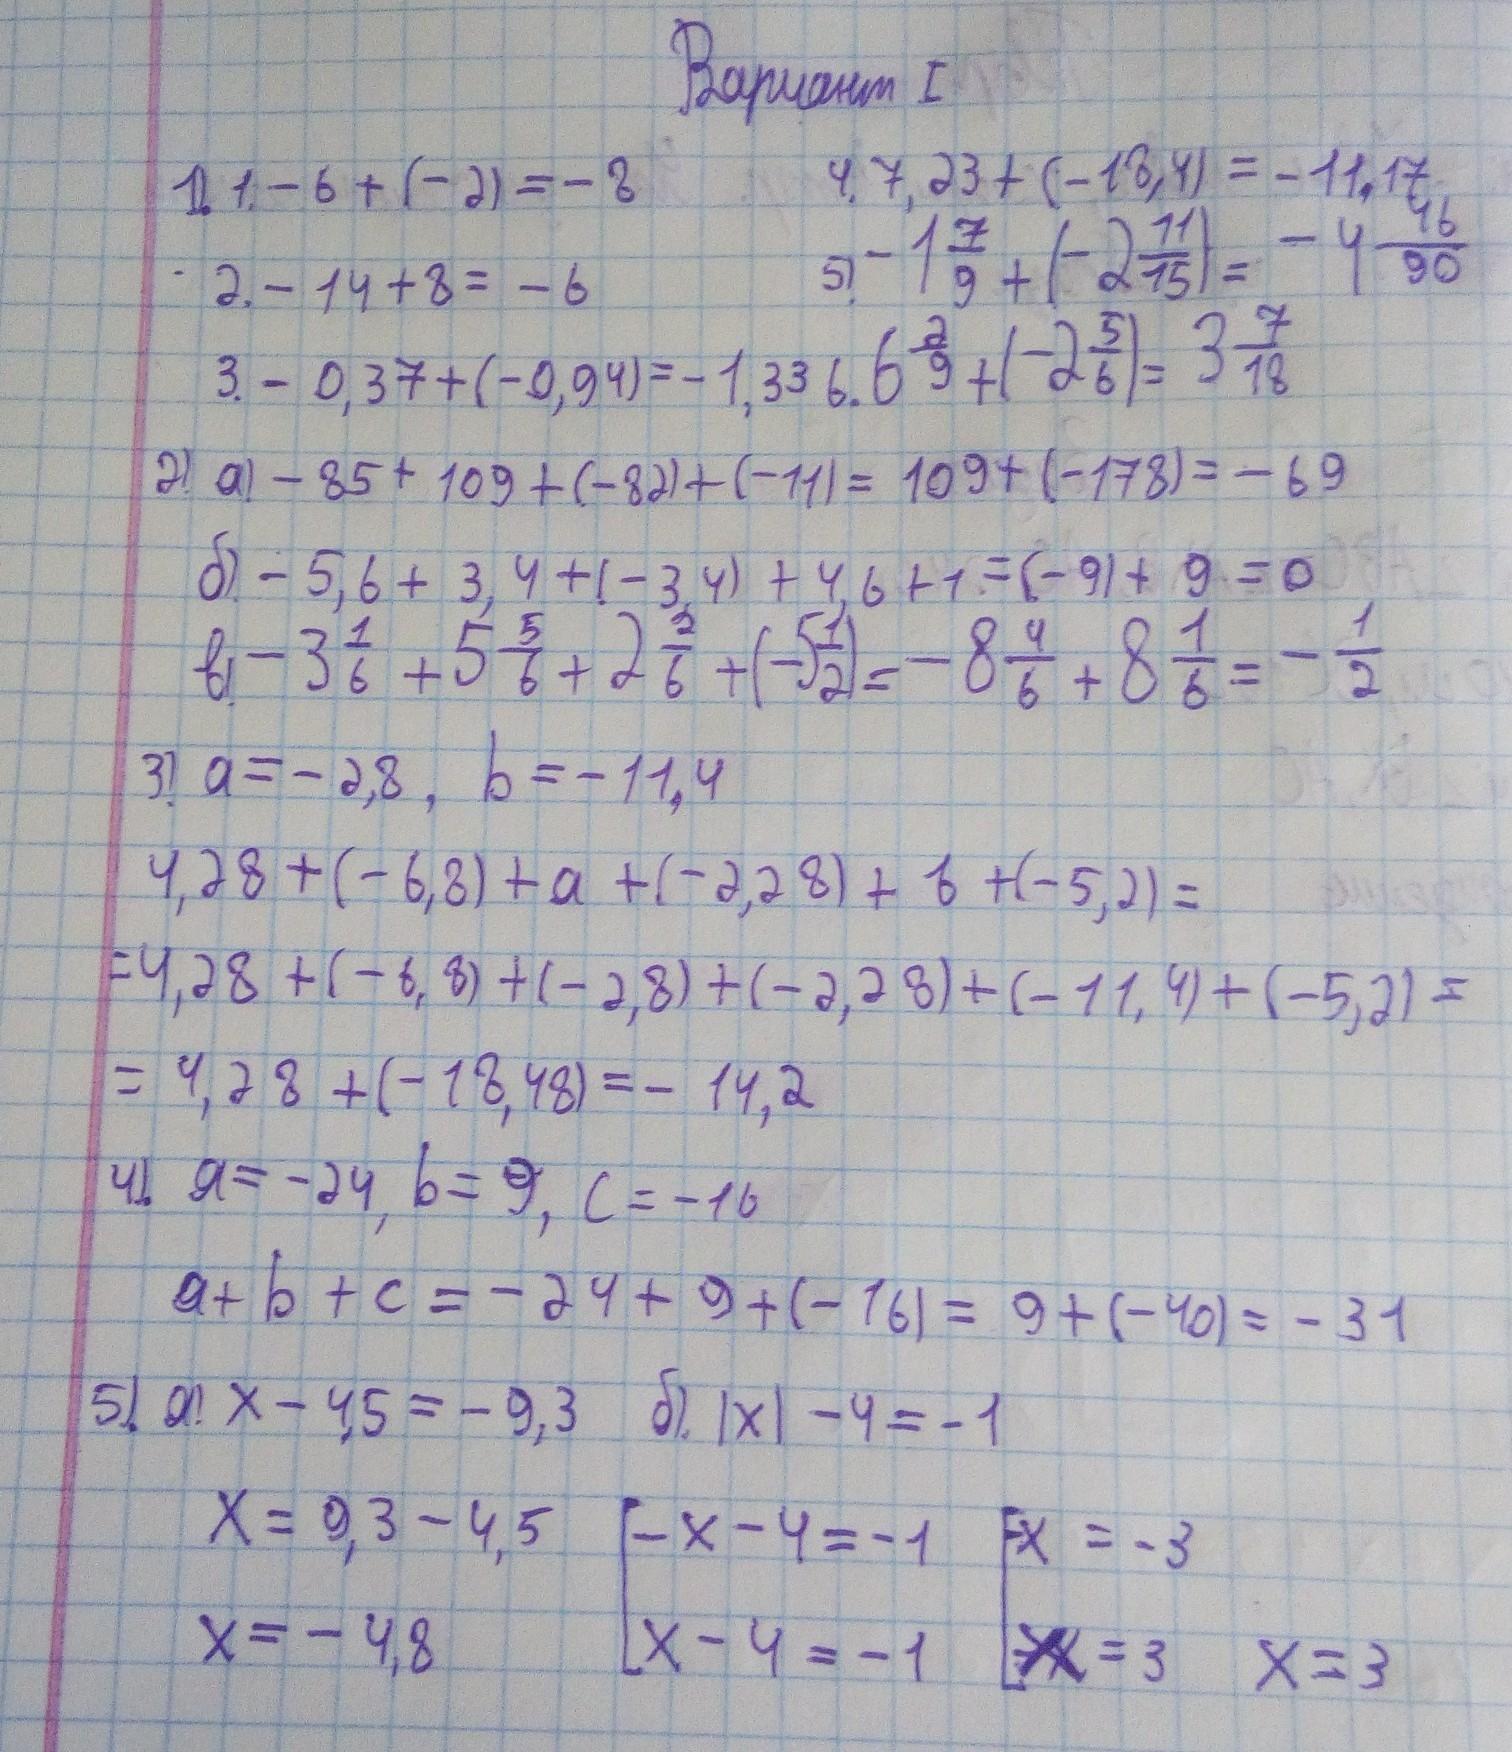 Вариант I
1). 1. - 6 + (- 2) = - 8
4. 7,23 + (-18,4) = -11,17
2. - 14 + 8 = - 6
5). - 1 7/9 + (- 2 11/15) = - 4 46/90
3. - 0,37 + (-0,94) = - 1,33
6. 6 2/9 + (- 2 5/6) = 3 7/18
2). а) - 85 + 109 + (-82) + (-11) = 109 + (-178) = - 69
б) - 5,6 + 3,4 + (-3,4) + 4,6 + 1 = (-9) + 9 = 0
в) - 3 1/6 + 5 5/6 + 2 2/6 + (-5 1/2) = - 8 4/6 + 8 1/6 = - 1/2
3). a = - 2,8, b = - 11,4
4,28 + (- 6,8) + a + (- 2,28) + b + (-5,2) =
= 4,28 + (- 6,8) + (- 2,8) + (- 2,28) + (- 11,4) + (-5,2) =
= 4,28 + (- 18,48) = - 14,2
4). a = -24, b = 9, c = -16
a + b + c = - 24 + 9 + (- 16) = 9 + (-40) = - 31
5). а). x - 4,5 = - 9,3 б). |x| - 4 = - 1
x = 9,3 - 4,5 [-x - 4 = - 1 [-x = -3
x = - 4,8 x - 4 = - 1 x = 3 x = 3